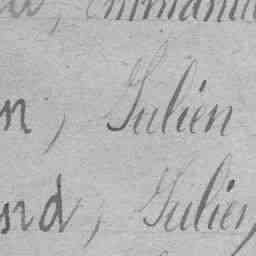 , Emmanu
n, Julien
nd, Julien